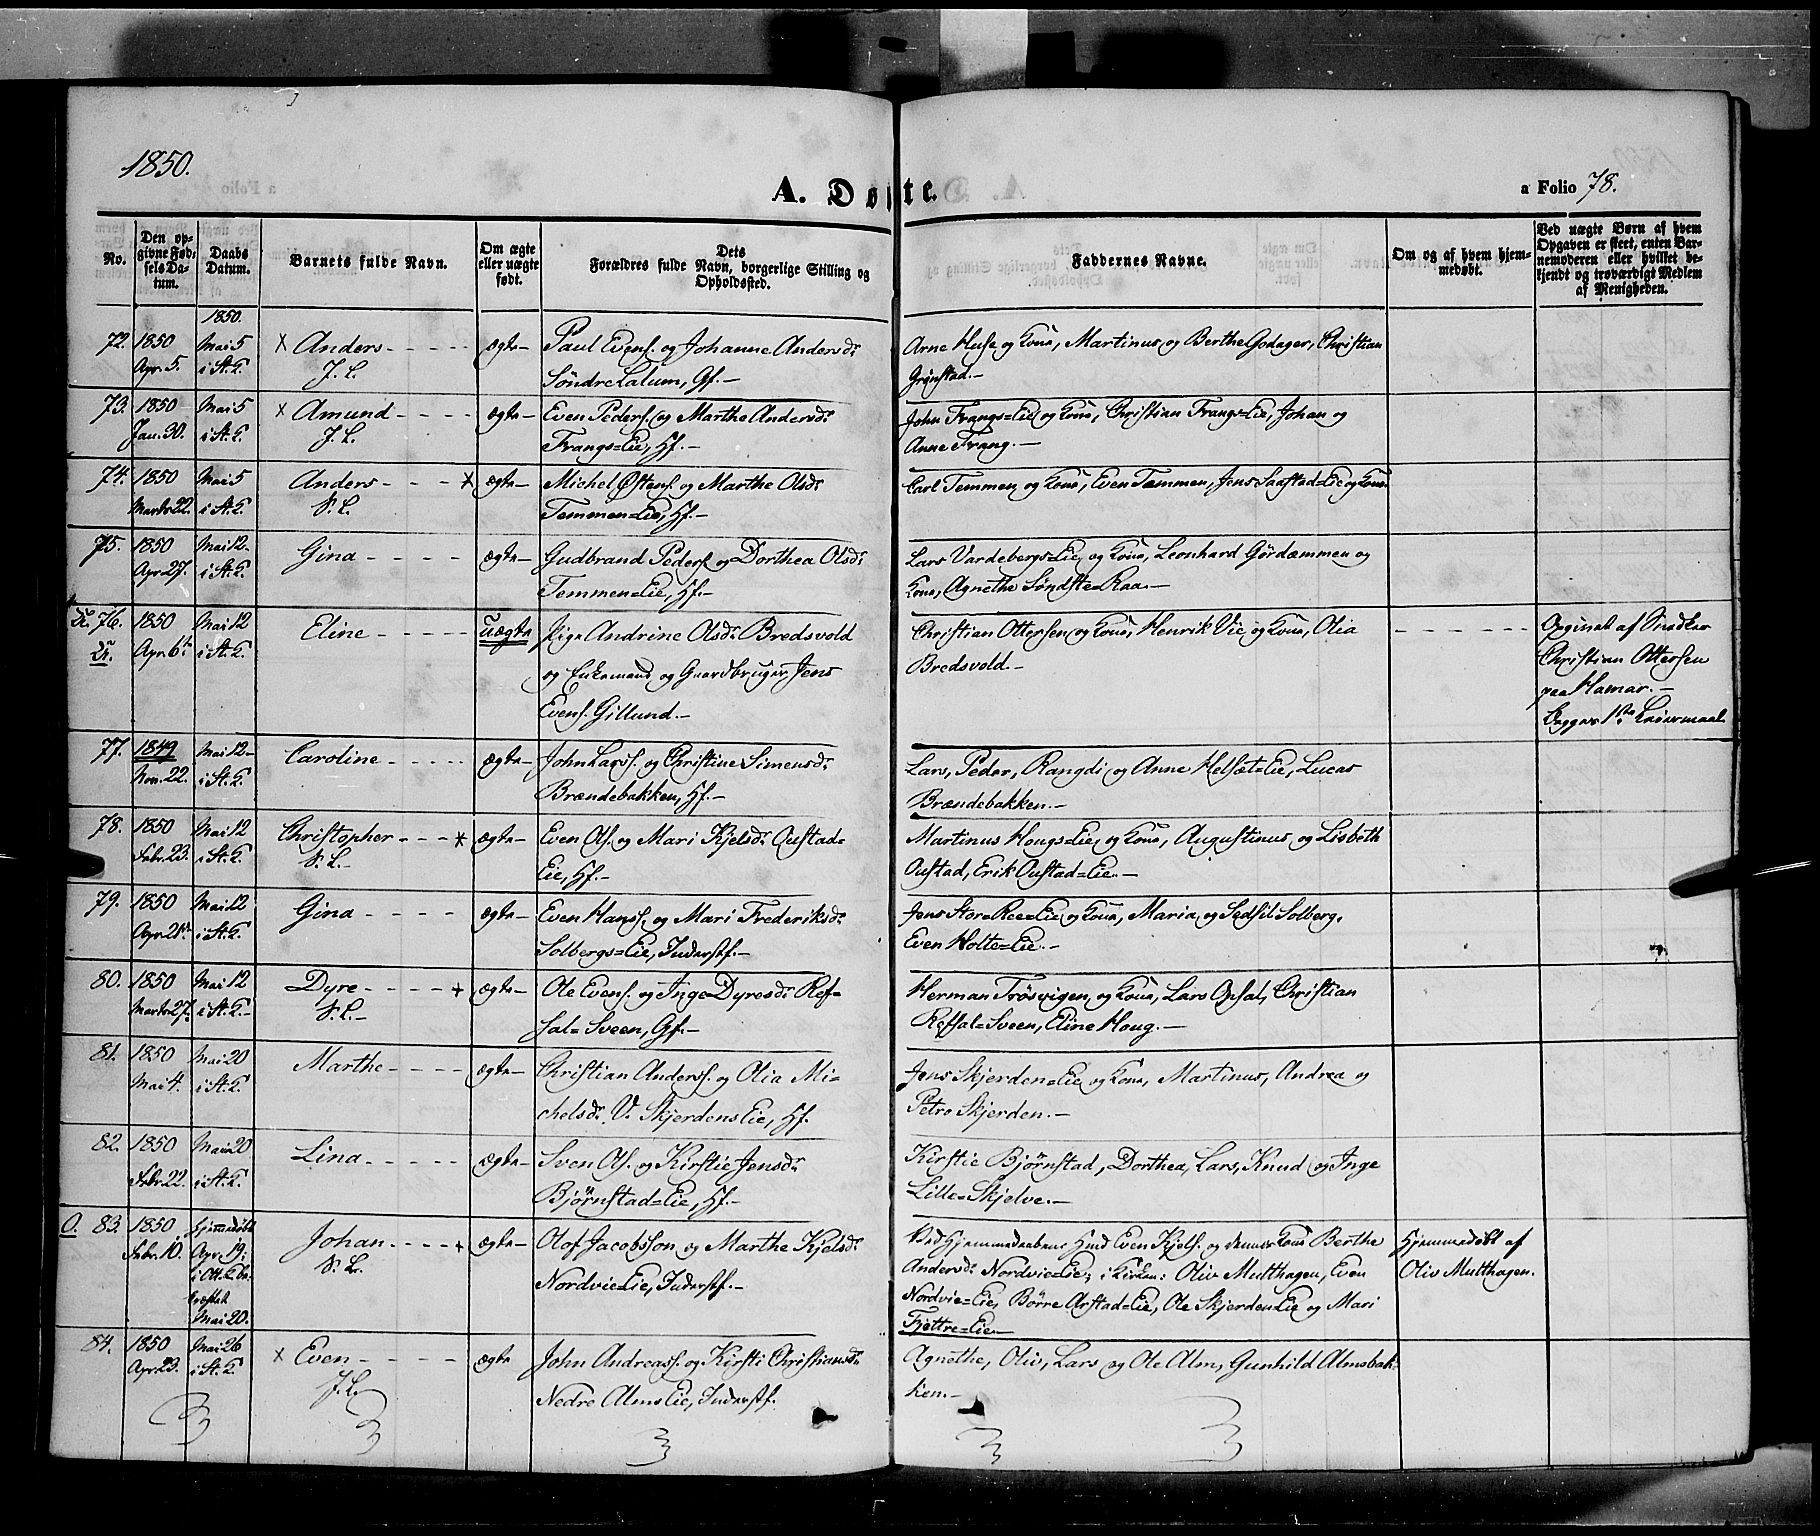 1850.
A. Døbte.
a Folio 78.
No.
Den opgivne Fødselsdatum.
Daabs Datum.
Barnets fulde Navn.
Om ægte eller uægte født.
Dets Forældres fulde Navn, borgerlige Stilling og Opholdssted.
Faddernes Navne.
Om og af hvem hjemmedøbt.
Ved uægte Børn af hvem Opgaven er skeet, enten Barnemoderen eller hvilket bekjendt og troværdigt Medlem af Menigheden.
1850.
72. 1850 Mai 5 × Anders - - - - ægte- Paul Evens. og Johanne Andersdr. Arne Huse og Kone, Martinus og Berthe Godager, Christian
Apr. 5. i St. K. J. L. Søndre Lalum, Gf.- Grønstad.-
73. 1850 Mai 5 × Amund - - - - ægte- Even Peders. og Marthe Andersdr. John Frangs=Eie og Kone, Christian Frangs=Eie, Johan og
Jan. 30. i St. K. J. L. Frangs=Eie, Hf.- Anne Frang.-
74. 1850 Mai 5 Anders - - - × ægte- Michel Østens. og Marthe Olsdr. Carl Temmen og Kone, Even Temmen, Jens Saastad=Eie og Kone.
Marts 22. i St. K. S. L. Temmen=Eie, Hf.-
75. 1850 Mai 12- Gina - - - - ægte- Gudbrand Peders. og Dorthea Olsdr. Lars Vardebergs=Eie og Kone, Leonhard Gördammen og
Apr. 27. i St. K. Temmen=Eie, Hf.- Kone, Agnethe Søndste=Raa.-
76. 1850 Mai 12 Eline - - - - uægte Pige Andrine Olsdr. Bredsvold Christian Ottersen og Kone, Henrik Vie og Kone, Olia - - - - - Opgivet af Snedker
Apr. 6te i St. K. og Enkemand og Gaardbruger Jens Bredsvold.- Christian Ottersen
Evens. Gillund.- paa Hamar.-
Begges 1ste Leiermaal.
77. 1849 Mai 12- Caroline - - - - ægte- John Larss. og Christine Simensdr. Lars, Peder, Rangdi og Anne Helset=Eie, Lucas
Nov. 22. i St. K. Brændebakken, Hf.- Brændebakken.-
78. 1850 Mai 12 Christopher - - - × ægte- Even Ols. og Mari Kjelsdr. Oustad= Martinus Hougs=Eie og Kone, Augustinus og Lisbeth
Febr. 23. i St. K. S. L.- Eie, Hf.- Oustad, Erik Oustad=Eie.-
79. 1850 Mai 12 Gina - - - - ægte- Even Hanss. og Mari Frederiksdr. Jens Stor=Ree=Eie og Kone, Maria og Sedsil Solberg,
Apr. 21. i St. K. Solbergs=Eie, Inderstf.- Even Holte=Eie.-
80. 1850 Mai 12 Dyre - - - - + ægte- Ole Evens. og Inge Dyresdr. Ref= Herman Frøsvigen og Kone, Lars Opsal, Christian
Marts 27. i St. K.- S. L.- sal=Sveen, Gf.- Refsal=Sveen, Eline Houg.-
81. 1850 Mai 20 Marthe - - - - ægte- Christian Anderss. og Olia Mi= Jens Skjerden=Eie og Kone, Martinus, Andrea og
Mai 4. i St. K. chelsdr. V. Skjerdens Eie, Hf. Petro Skjerden.-
82. 1850 Mai 20 Lina - - - - ægte- Sven Ols. og Kirstie Jensdr. Kirstie Bjørnstad, Dorthea, Lars, Knud og Inge
Febr. 22. i St. K. Bjørnstad=Eie, Hf.- Lille=Skjelve.-
O. 83. 1850 Hjemmedøbt Johan - - - - + ægte- Olof Jacobsson og Marthe Kjelsdr. Ved Hjemmedaaben: Hmd Even Kjels. og dennes Kone Berthe Hjemmedøbt af
Febr. 10. Apr. 19; S. L. Nordvie=Eie, Inderstf.- Andersdr. Nordvie=Eie; i Kirken: Oliv Multhagen, Even Oliv Multhagen.
i Ott. K. be- Nordvie=Eie, Børre Arstad=Eie, Ole Skjerden Eie og Mari
kræftet Fjettre=Eie.-
Mai 20.
84. 1850 Mai 26 × Even - - - - ægte John Andreass. og Kirsti Christiansdr. Agnethe, Oliv, Lars og Ole Alm, Gunhild Almsbak=
Apr. 23. i St. K. J. L. Nedre Alms Eie, Inderstf. ken.-